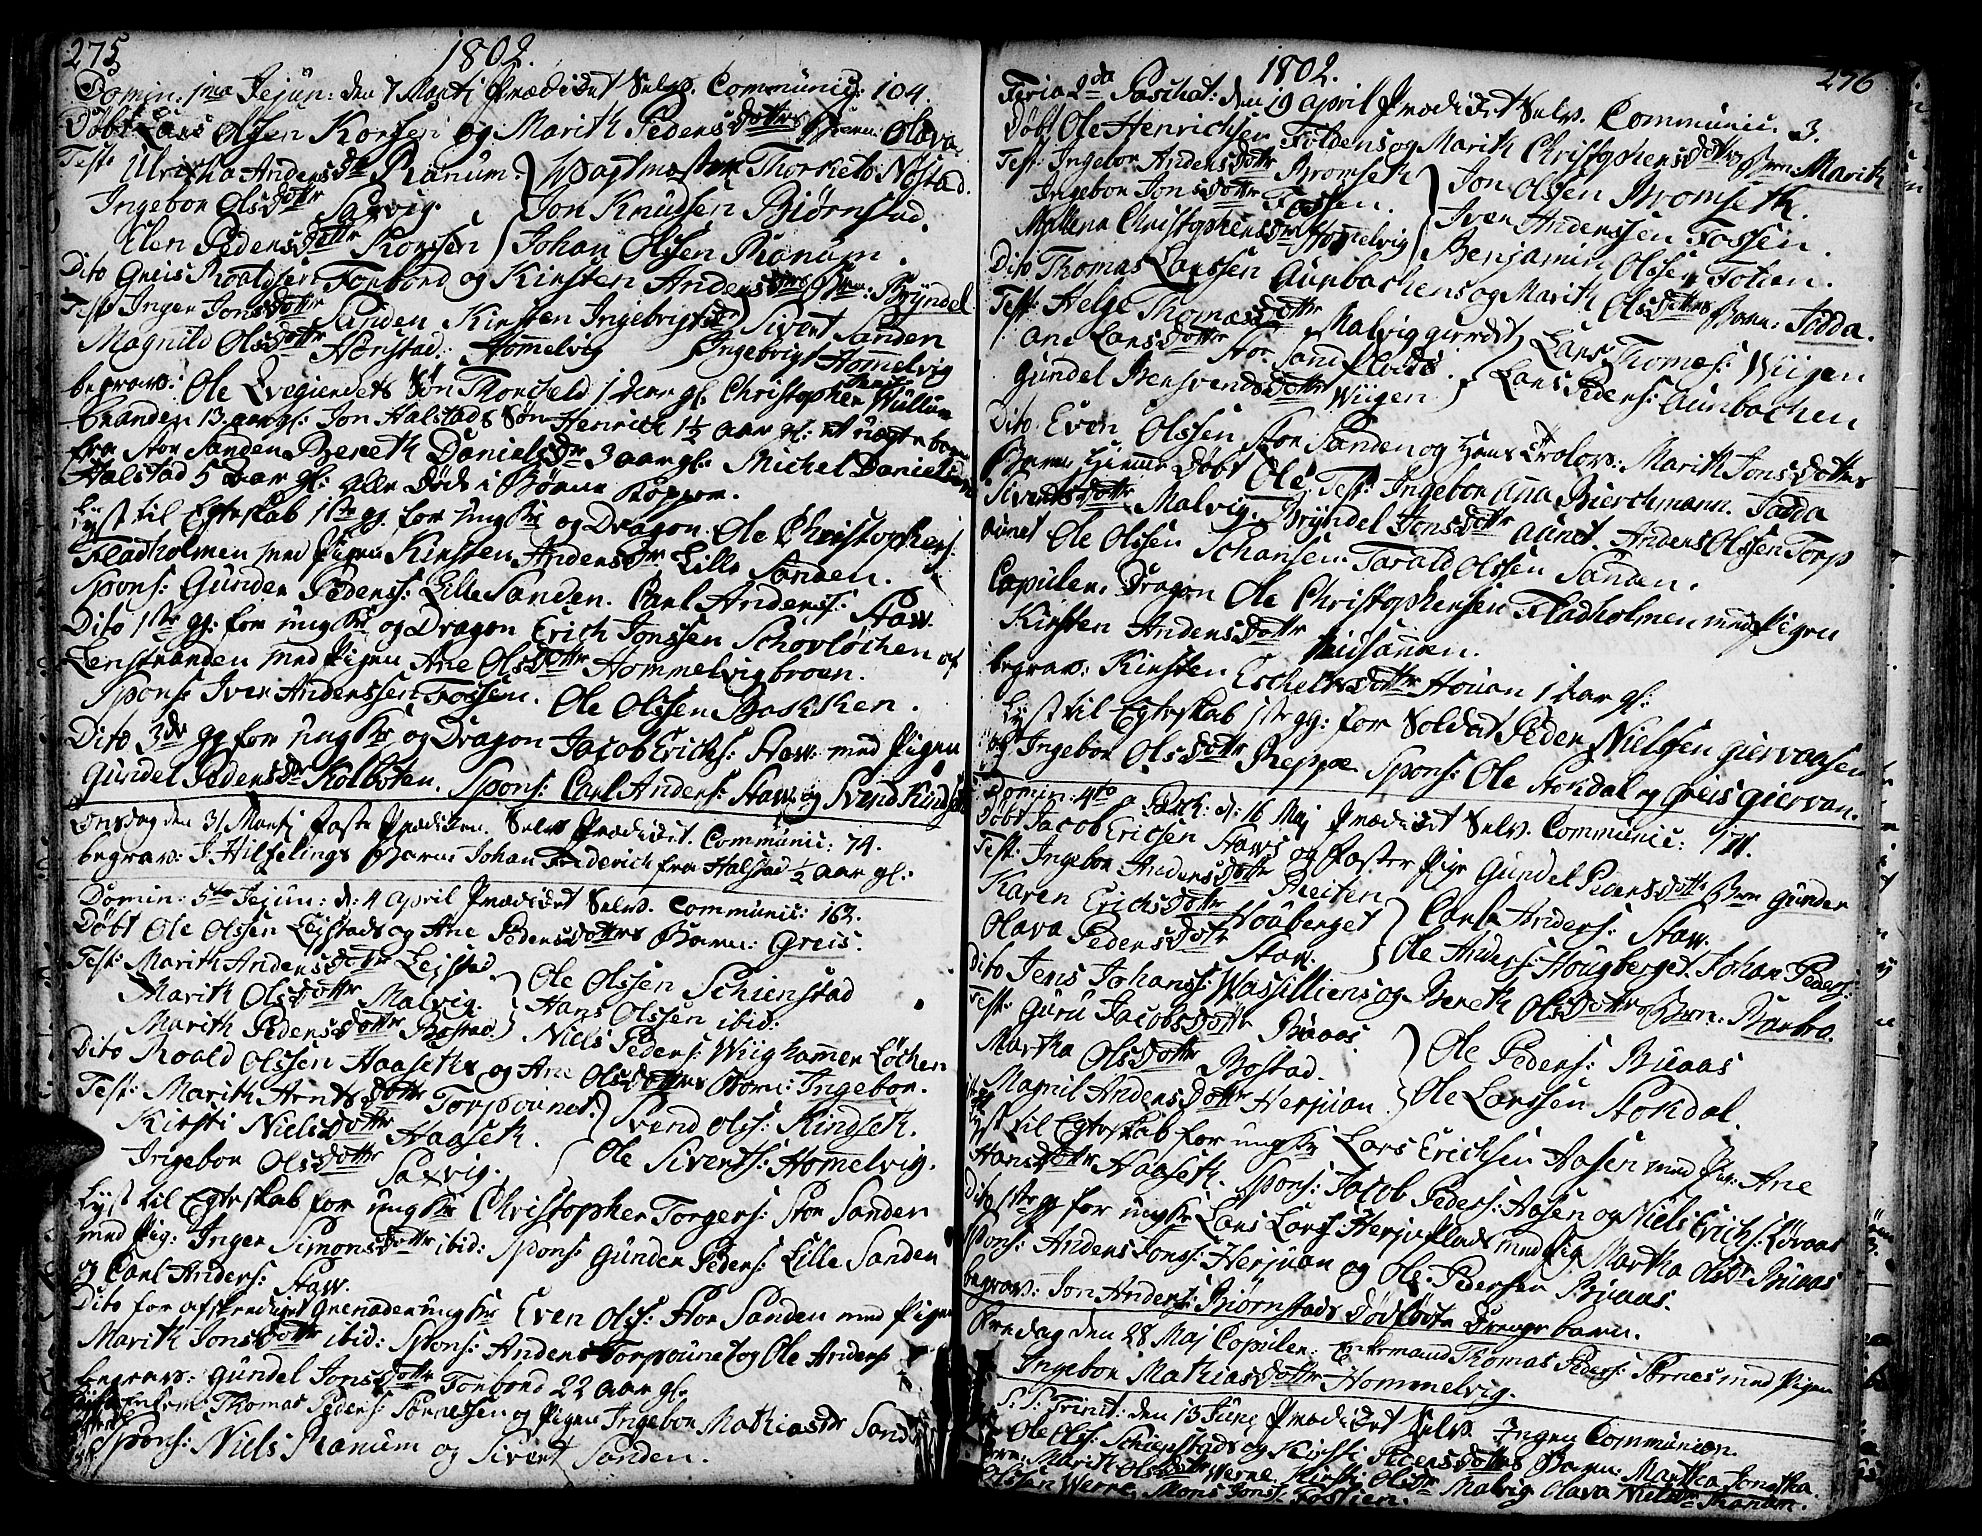 275
1802.
Domin: 1ma Jejun: den 7 Marti Prædiket Selv. Communic: 104.
Døbt Lars Olsen Korsen og Marith Peders Dotters Barn: Olava
Test: Ulricha Anders Dr Ranum. Wagtmester Thorkel Nøstad.
Ingebor Ols Dottr Saxvig. Jon Knudsen Biørnstad.
Elen Peders Dottr Korssen Johan Olssen Ranum.
Dito Greis Roaldsen Forbord og Kirsten Anders Barn: Bryndel
Test: Inger Jons Dottr Sanden Kirsten Ingebrigts Dr Sivert Sanden
Magnild Ols Dottr Hønstad: Hommelvig Ingebrigt Hommelvig
begrav: Ole Søn 1 aar gl. Christopher Wullum
13 aar gl: Jon Halstads Søn Henrich 1½ aar gl: et
fra Stor Sanden Bereth Daniels Dr 3 aar gl: Michel Danielsen
Halstad 5 aar gl: alle Døde i Børne Kopper.
Lyst til Egteskab 1ste gg. for ung Kr og Dragon Ole Christophers:
Fladholmen med Pigen Kirsten Anders Dr Lille Sanden.
Spons: Gunder Peders: Lille Sanden. Carl Anders: Stav.
Dito 1ste gg: for ung Kr og Dragon Erich Jonssen Schovløchen af
Lenstranden med Pigen Ane Ols Dottr Hommelvigbroen.
Spons: Iver Anderssen Fossen. Ole Olssen Bakken.
Dito 3de gg for ung Kr og Dragon Jacob Erichs: Stav med Pigen
Gundel Peders Dr Kolboten. Spons: Carl Anders: Stav og Svend Kindset
Onsdag den 31 Marti Faste Prædiken. Selv Prædiket. Communic: 74.
begrav: J: Hilfelings Barn Johan Friderich fra Halstad ½ aar gl:
Domin: 5te Jejun: d: 4 April Prædiket Selv. Communic: 163.
Døbt Ole Olssen Leistads og Ane Peders Dotters Barn: Greis.
Test: Marith Anders Dottr Leistad. Ole Olssen Schienstad
Marith Ols Dottr Malvig. Hans Olssen ibid:
Marith Peders Dottr Bostad Niels Peders: Wiighammer Løchen
Dito Roald Olssen Haasets og Ane Ols Dotters Barn: Ingebor.
Test: Marith Arnts Dottr Torpounet. Svend Ols: Kindseth.
Kirsti Niels Dottr Haaseth. Ole Siverts: Hommelvig.
Ingebor Ols Dottr Saxvig.
Lyst til Egteskab for ung Kr Christopher Torgers: Stor Sanden
med Pig: Inger Simons Dottr ibid: Spons: Gunder Peders: Lille Sanden
og Carl Anders: Stav.
Dito for afskediget Grenader ung Kr Even Ols: Stor Sanden med Pigen
Marith Jons Dottr ibid: Spons: Anders Torpounet og Ole Anders:
begrav: Gundel Jons Dottr Forbord 22 aar gl.
Thomas Peders: Sørnessen og Pigen Ingebor Mathias Dr Sand
Spons: Niels Ranum og Sivert Sanden.
276
1802.
Feria 2da Paschat: den 19 April Prædiket Selv. Communic: 3.
Døbt Ole Henrichsen Foldens og Marith Christophers Dotters Barn: Marith
Test: Ingebor Anders Dottr Bromseth Jon Olssen Bromseth.
Ingebor Jons Dottr Fossen. Iver Anderssen Fossen.
Mallena Christophers Dr Hommelvig Benjamin Olssen Folien.
Dito Thomas Larssen Aunbachens og Marith Ols Dotters Barn: Sadda.
Test: Helge Thomas Dottr Malvig Lars Thomes: Wiigen
Ane Lars Dottr Stor Sand Lars Peders: Aunbachen
Gundel Bersvends Dottr Wiigen
Dito Even Olssen Stor Sanden og Hans Marith Jons Dotters
Barn hiemme Døbt Ole. Test: Ingebor Anna Bierchmann. Sadda
Siverts Dottr Malvig. Bryndel Jons Dottr Aunet. Anders Olssen Torp
aunet Ole Olssen Schansen. Tarald Olssen Sanden.
Copuler: Dragon Ole Christophersen Fladholmen med Pigen
Kirsten Anders Dottr
begrav: Kirsten Dottr Houan 1 aar gl:
Lyst til Egteskab 1ste gg: for Soldat Peder Nielssen Giervansen
og Ingebor Ols Dottr Reppe Spons: Ole Stokdal og Greis Giervan.
Domin: 4to p. Pasch: d: 16 Maj Prædiket Selv. Communic: 171.
Døbt Jacob Ericsen Stavs og Fæster Pige Gundel Peders Dotters Barn Gunder
Test: Ingebor Anders Dottr Reiten
Karen Erichs Dottr Houberget Carl Anders: Stav.
Olava Peders Dottr Stav. Ole Anders: Hougberget. Johan Peders:
Dito Jens Johans: Wassilliens og Bereth Ols Dotters Barn: Barbra.
Test: Guru Jacobs Dottr Buaas. Ole Peders: Buaas
Martha Ols Dottr Bostad. Ole Larssen Stokdal.
Magnil Anders Dottr Herjuan.
Lyst til Egteskab for ung Kr Lars Erichsen Aasen med Pig: Ane
Hans Dottr Haaseth. Spons: Jacob Peders: Aasen og Niels Erichs: Løvaas
Dito 1ste gg for ung Kr Lars Lars: Herju Plads med Pig Martha Ols Dr Buaas
Spons: Anders Jons: Herjuan og Ole Pedersen Buaas.
begrav: Jon Anders: Biørnstads Dødfødte Drenge barn.
Fredag den 28 Maj Copuler: Enkemand Thomas Peders: Sørnes med Pigen
Ingebor Mathias Dottr Hommelvig.
S: S: Trinit: den 13 Junj Prædiket Selv. Ingen Communion.
Ole Ols: Schienstads og Kirsti Peders Dotters Barn: Martha Jonetha.
Marith Ols Dottr Werne. Kirsti Ols Dr Malvig Olava Niels Dr Ranum.
Olssen Werne Mons Jons: Fostien.